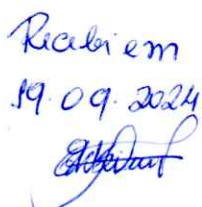 Recebi em
19.09.2024